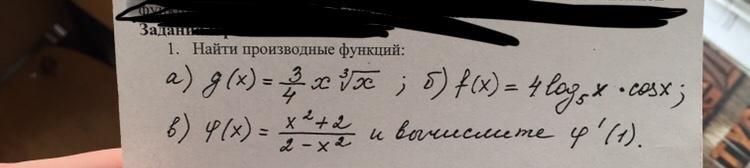 Задани
1. Найти производные функций:
а) g(x) = 3/4 x ∛x ; б) f(x) = 4 log₅ x · cosx;
в) φ(x) = (x² + 2)/(2 - x²) и вычислите φ'(1).